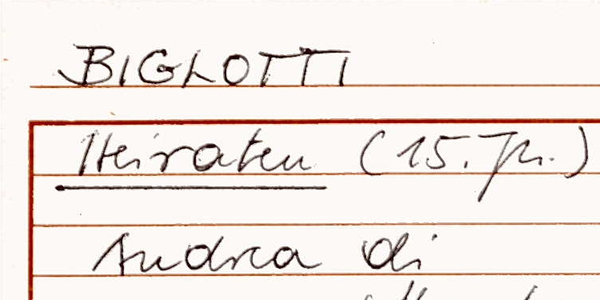 BIGLOTTI
Heiraten (15. Jh.)
Andrea di